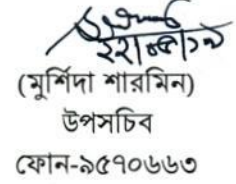 ২২।০৫।১৯
(মুর্শিদা শারমিন)
উপসচিব
ফোন-৯৫৭০৬৬৩